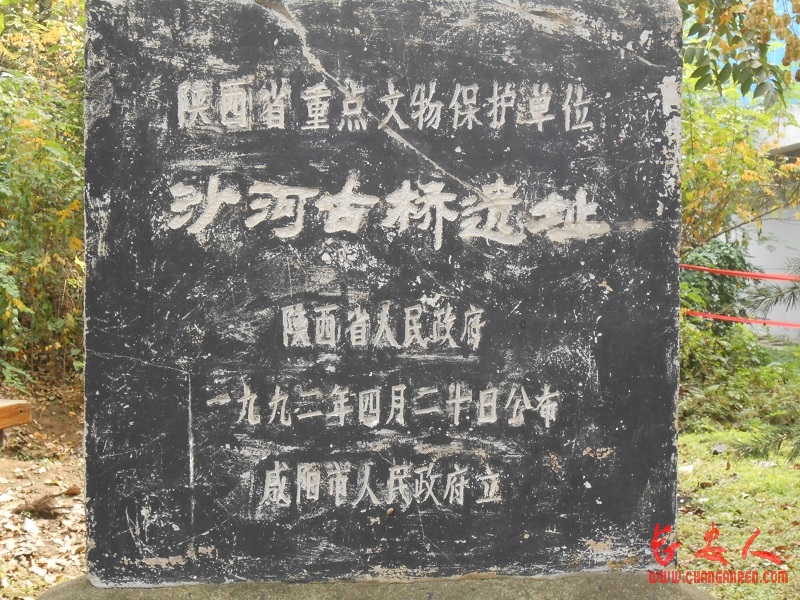 陕西省重点文物保护单位
沙河古桥遗址
陕西省人民政府
一九九二年四月二十日公布
咸阳市人民政府立
长安人
WWW.CHANGANREN.COM